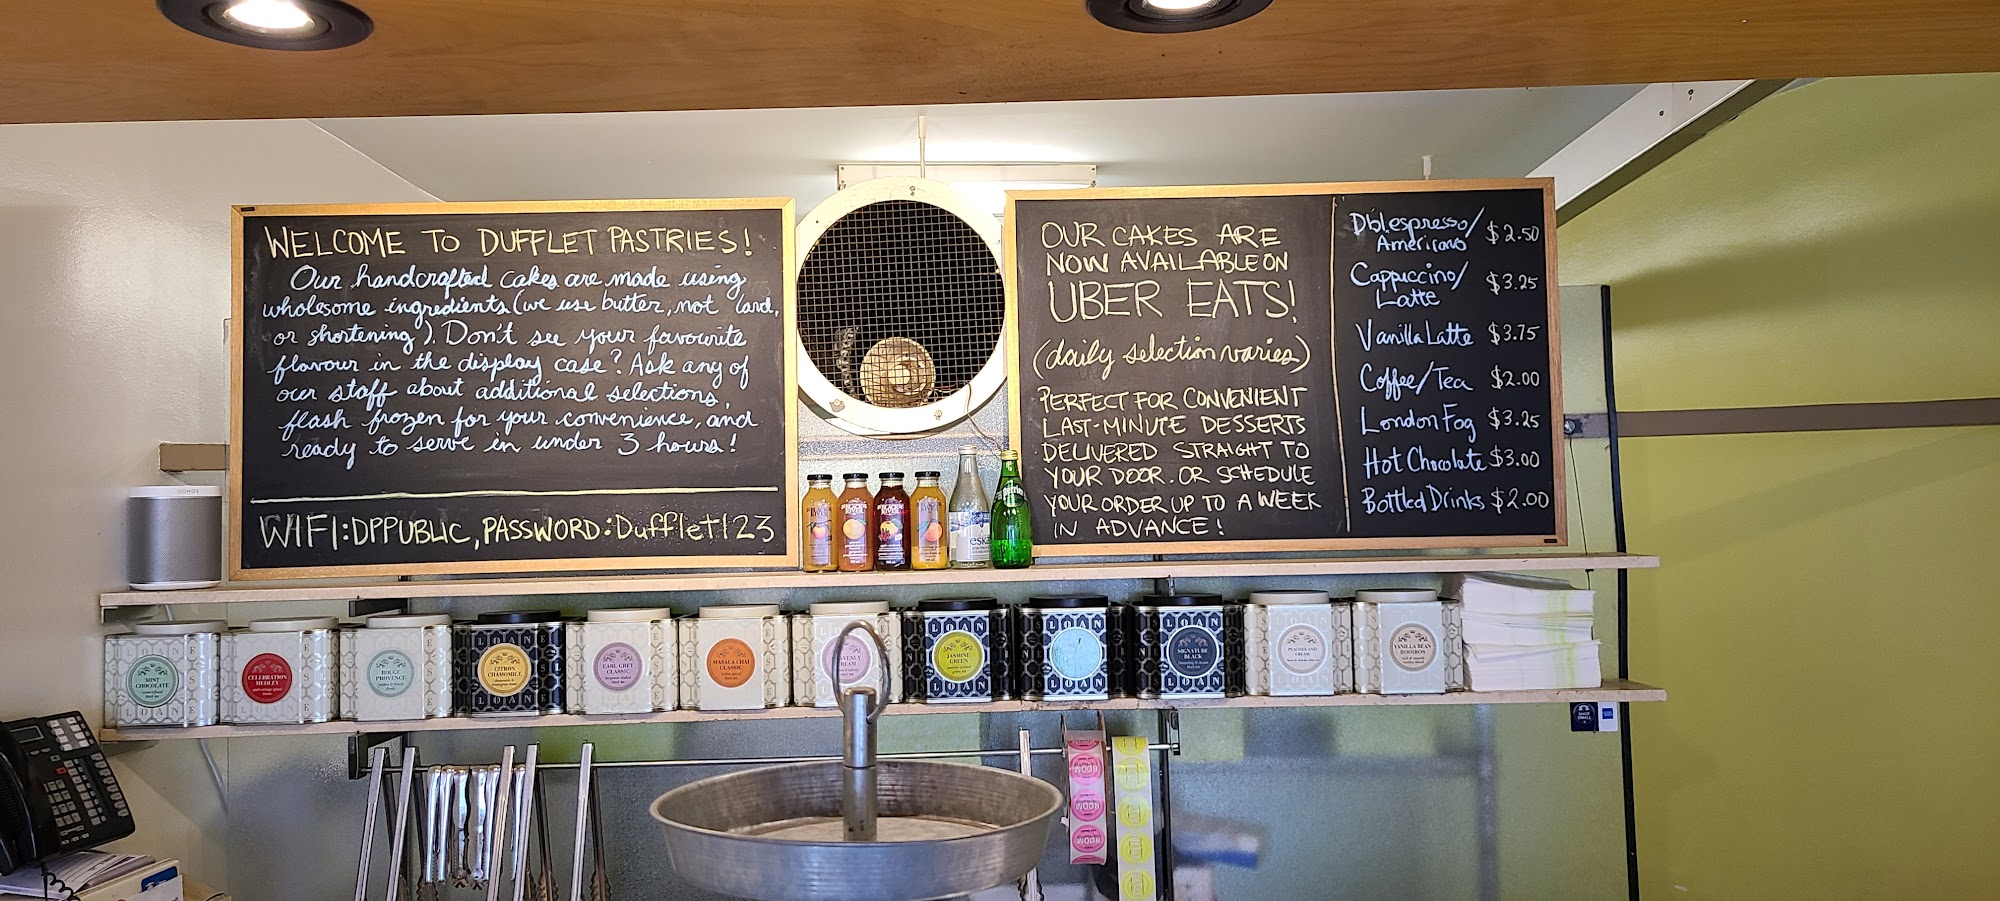 WELCOME TO DUFFLET PASTRIES!
Our handcrafted cakes are made using
wholesome ingredients (we use butter, not lard,
or shortening). Don't see your favourite
flavour in the display case? Ask any of
our staff about additional selections,
flash frozen for your convenience, and
ready to serve in under 3 hours!
WIFI:DPPUBLIC, PASSWORD:Dufflet123
OUR CAKES ARE
NOW AVAILABLE ON
UBER EATS!
(daily selection varies)
PERFECT FOR CONVENIENT
LAST-MINUTE DESSERTS
DELIVERED STRAIGHT TO
YOUR DOOR. OR SCHEDULE
YOUR ORDER UP TO A WEEK
IN ADVANCE!
Dbl.espresso/
Americano $2.50
Cappuccino/
Latte $3.25
Vanilla Latte $3.75
Coffee/Tea $2.00
London Fog $3.25
Hot Chocolate $3.00
Bottled Drinks $2.00
SONOS
eska
perrier
MINT
CHOCOLATE
CELEBRATION
MEDLEY
ROUGE
PROVENCE
CITRON
CHAMOMILE
EARL GREY
CLASSIC
MASALA CHAI
CLASSIC
JASMINE
GREEN
SIGNATURE
BLACK
PEACHES AND
CREAM
VANILLA BEAN
ROOIBOS
SLOANE
SHOP
SMALL
ROOM
ROOM
ROOM